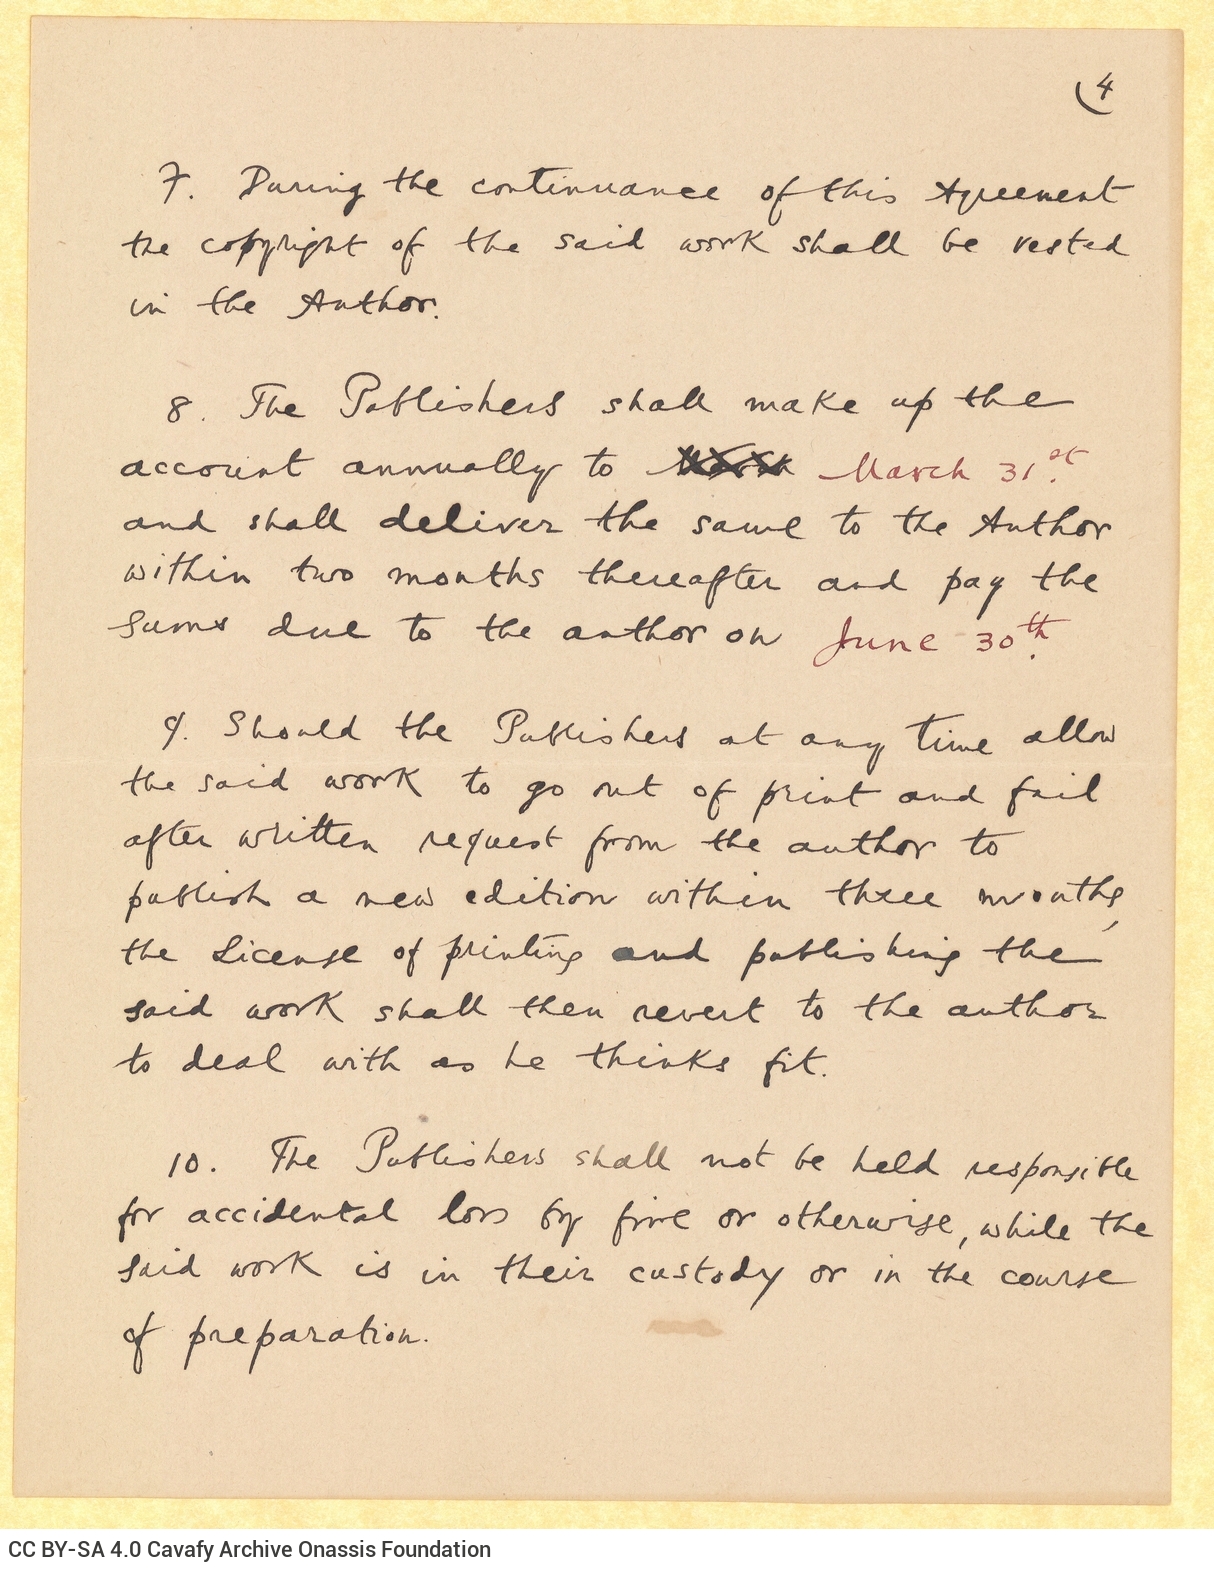 4
7. During the continuance of this Agreement
the copyright of the said work shall be vested
in the Author.
8. The Publishers shall make up the
account annually to March 31st.
and shall deliver the same to the Author
within two months thereafter and pay the
sums due to the author on June 30th.
9. Should the Publishers at any time allow
the said work to go out of print and fail
after written request from the author to
publish a new edition within three months,
the License of printing and publishing the
said work shall then revert to the author
to deal with as he thinks fit.
10. The Publishers shall not be held responsible
for accidental loss by fire or otherwise, while the
said work is in their custody or in the course
of preparation.
CC BY-SA 4.0 Cavafy Archive Onassis Foundation